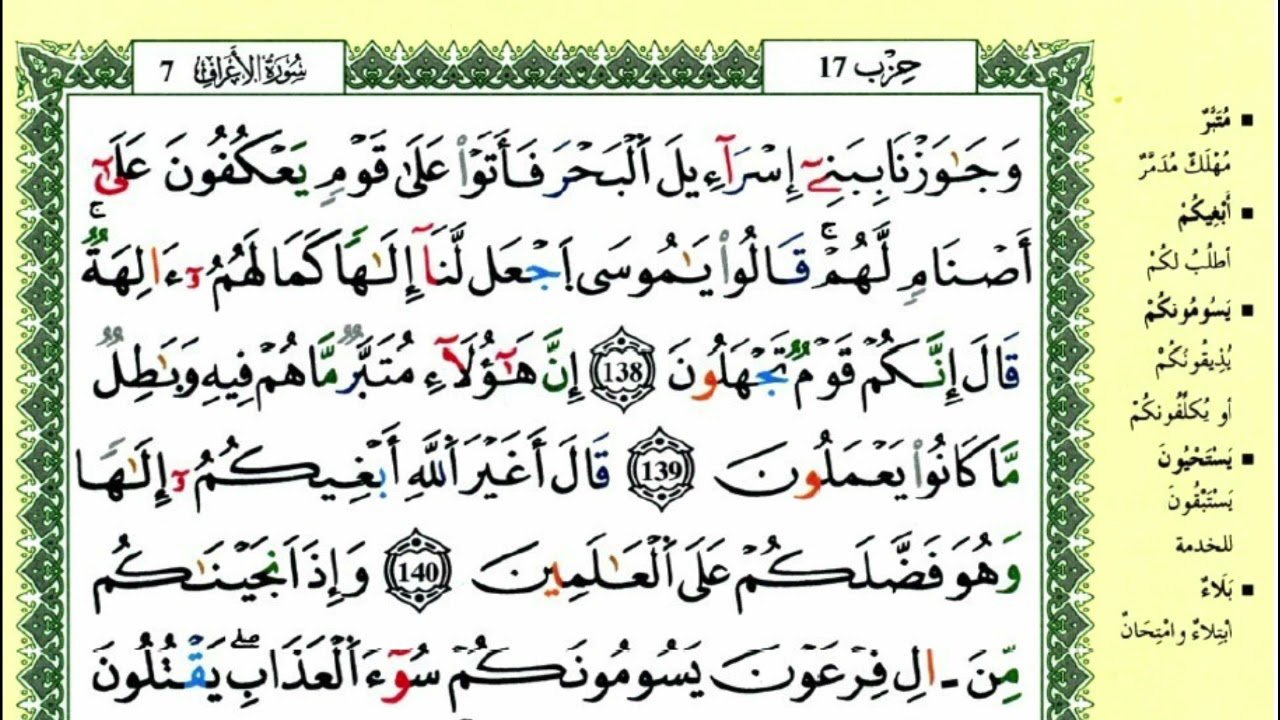 حِزْب 17
سُورَةُ الأَعْرَافِ 7
وَجَٰوَزْنَا بِبَنِےٓ إِسْرَآءِيلَ اَ۬لْبَحْرَ فَأَتَوْاْ عَلَىٰ قَوْمٖ يَعْكُفُونَ عَلَىٰٓ
أَصْنَامٖ لَّهُمْۚ قَالُواْ يَٰمُوسَى اَ۪جْعَل لَّنَآ إِلَٰهاٗ كَمَا لَهُمُۥٓ ءَالِهَةٞۚ
قَالَ إِنَّكُمْ قَوْمٞ تَجْهَلُونَ 138 إِنَّ هَٰٓؤُلَآءِ مُتَبَّرٞ مَّا هُمْ فِيهِ وَبَٰطِلٞ
مَّا كَانُواْ يَعْمَلُونَ 139 قَالَ أَغَيْرَ اَ۬للَّهِ أَبْغِيكُمُۥٓ إِلَٰهاٗ
وَهُوَ فَضَّلَكُمْ عَلَى اَ۬لْعَٰلَمِينَ 140 وَإِذَ اَنجَيْنَٰكُم
مِّنَ اٰلِ فِرْعَوْنَ يَسُومُونَكُمْ سُوٓءَ اَ۬لْعَذَابِۖ يَقْتُلُونَ
■ مُتَبَّرٌ
مُهْلَكٌ مُدَمَّرٌ
■ أَبْغِيكُمْ
أطْلُبُ لكُمْ
■ يَسُومُونكُمْ
يُذِيقُونُكُمْ
أو يُكلِّفُونكُمْ
■ يَسْتَحْيُونَ
يَسْتَبْقُونَ
للخدمة
■ بَلَاءٌ
ابْتِلاءٌ وامْتِحَانٌ